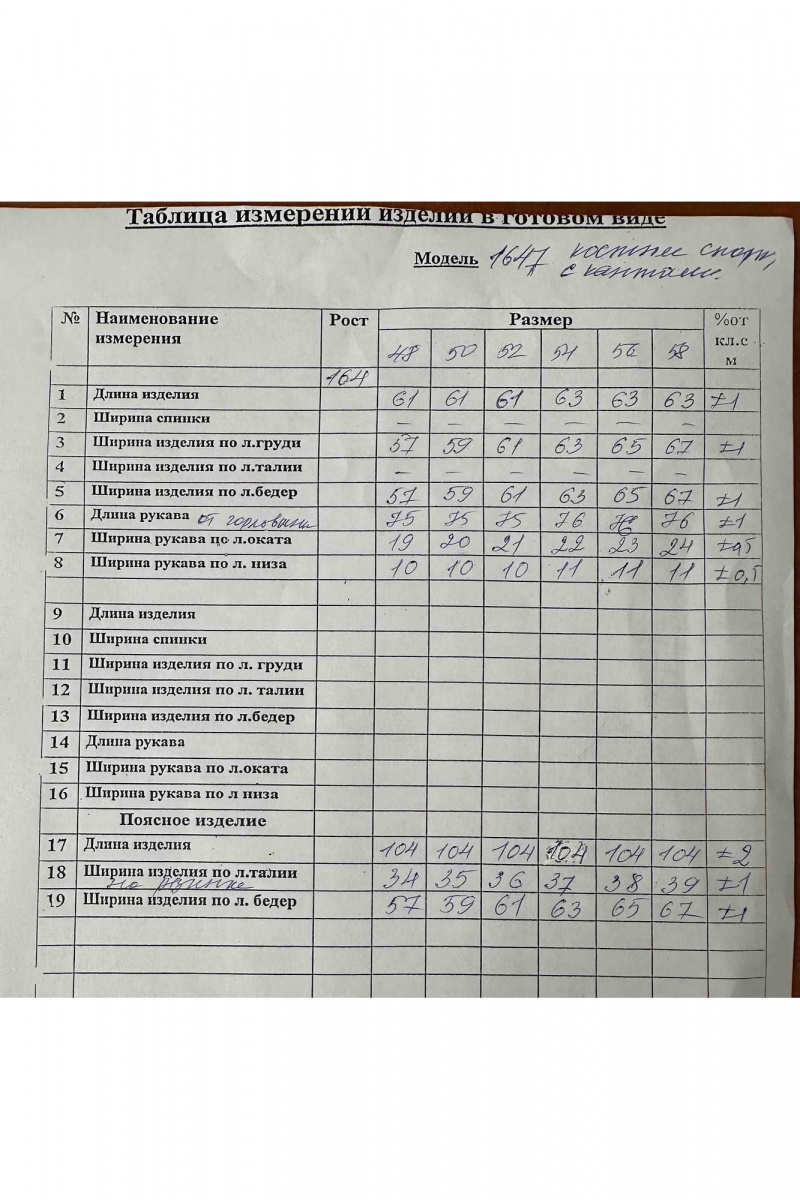 Таблица измерений изделий в готовом виде
Модель 1647 костюм спорт,
с кантами.
№ Наименование измерения Рост Размер %от кл.с м
48 50 52 54 56 58
164
1 Длина изделия 61 61 61 63 63 63 ±1
2 Ширина спинки – – – – – –
3 Ширина изделия по л.груди 57 59 61 63 65 67 ±1
4 Ширина изделия по л.талии – – – – – –
5 Ширина изделия по л.бедер 57 59 61 63 65 67 ±1
6 Длина рукава от горловины 75 75 75 76 76 76 ±1
7 Ширина рукава по л.оката 19 20 21 22 23 24 ±0,5
8 Ширина рукава по л. низа 10 10 10 11 11 11 ±0,5
9 Длина изделия
10 Ширина спинки
11 Ширина изделия по л. груди
12 Ширина изделия по л. талии
13 Ширина изделия по л.бедер
14 Длина рукава
15 Ширина рукава по л.оката
16 Ширина рукава по л низа
Поясное изделие
17 Длина изделия 104 104 104 104 104 104 ±2
18 Ширина изделия по л.талии 34 35 36 37 38 39 ±1
на резинке
19 Ширина изделия по л. бедер 57 59 61 63 65 67 ±1